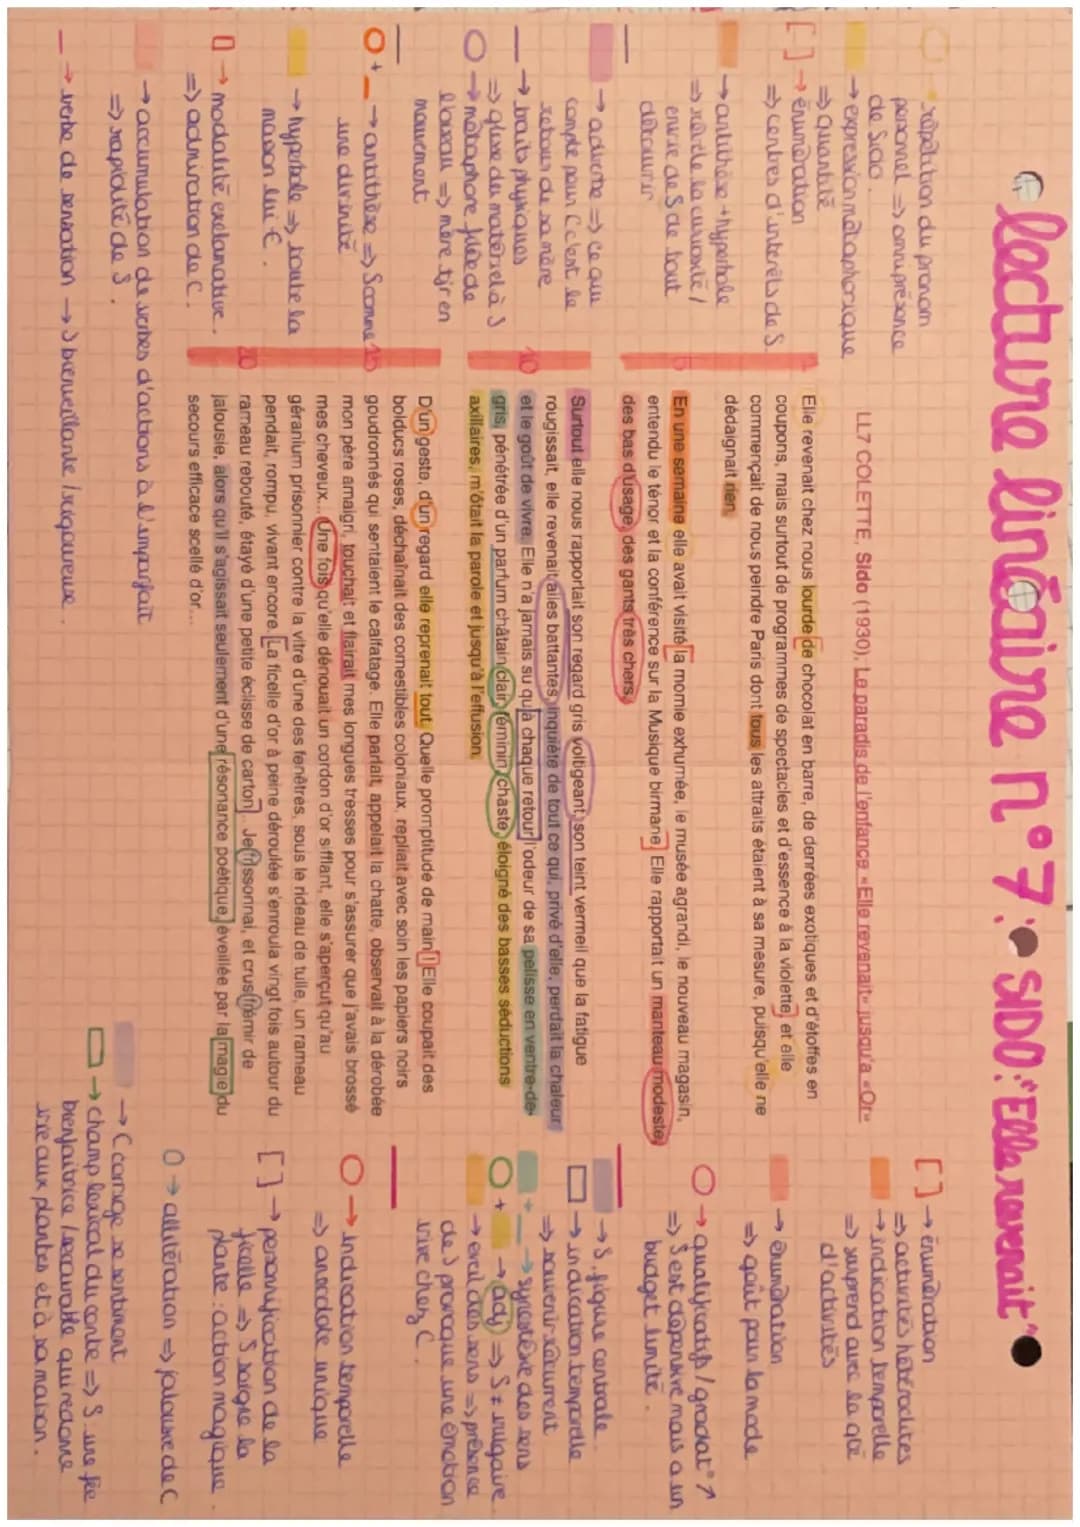 lecture linéaire n°7 : SIDO : "Elle revenait"
LL7 COLETTE, Sido (1930), Le paradis de l'enfance « Elle revenait » jusqu'à « Or »
→ répétition du pronom
personnel => omniprésence
de Sido.
→ expression métaphorique
=> quantité
[ ] → énumération
=> centres d'intérêts de S.
→ antithèse + hyperbole
=> révèle la curiosité /
envie de S de tout
découvrir
→ adverbe => ce qui
compte pour C c'est le
retour de sa mère
→ traits physiques
=> glisse du matériel à S
→ métaphore filée de
l'oiseau => mère tjr en
mouvement
+ → antithèse => S comme
une divinité
→ hyperbole => route la
maison lui €.
→ modalité exclamative.
=> admiration de C.
→ accumulation de verbes d'actions à l'imparfait
=> rapidité de S.
→ verbe de sensation → S bienveillante / rigoureuse.
1
Elle revenait chez nous lourde de chocolat en barre, de denrées exotiques et d'étoffes en
coupons, mais surtout de programmes de spectacles et d'essence à la violette, et elle
commençait de nous peindre Paris dont tous les attraits étaient à sa mesure, puisqu'elle ne
dédaignait rien.
5
En une semaine elle avait visité la momie exhumée, le musée agrandi, le nouveau magasin,
entendu le ténor et la conférence sur la Musique birmane. Elle rapportait un manteau modeste,
des bas d'usage, des gants très chers.
Surtout elle nous rapportait son regard gris voltigeant, son teint vermeil que la fatigue
rougissait, elle revenait ailes battantes, inquiète de tout ce qui, privé d'elle, perdait la chaleur
10
et le goût de vivre. Elle n'a jamais su qu'à chaque retour l'odeur de sa pelisse en ventre-de-
gris, pénétrée d'un parfum châtain clair, féminin, chaste, éloigné des basses séductions
axillaires, m'ôtait la parole et jusqu'à l'effusion.
D'un geste, d'un regard elle reprenait tout. Quelle promptitude de main ! Elle coupait des
bolducs roses, déchaînait des comestibles coloniaux, repliait avec soin les papiers noirs
15
goudronnés qui sentaient le calfatage. Elle parlait, appelait la chatte, observait à la dérobée
mon père amaigri, touchait et flairait mes longues tresses pour s'assurer que j'avais brossé
mes cheveux... Une fois qu'elle dénouait un cordon d'or sifflant, elle s'aperçut qu'au
géranium prisonnier contre la vitre d'une des fenêtres, sous le rideau de tulle, un rameau
pendait, rompu, vivant encore. La ficelle d'or à peine déroulée s'enroula vingt fois autour du
20
rameau rebouté, étayé d'une petite éclisse de carton. Je frissonnai, et crus frémir de
jalousie, alors qu'il s'agissait seulement d'une résonance poétique, éveillée par la magie du
secours efficace scellé d'or...
[ ] → énumération
=> activités hétéroclites
→ indication temporelle
=> surprend avec la qté
d'activités
→ énumération
=> goût pour la mode
→ qualificatifs / gradat° ↗
=> S est dépensive mais a un
budget limité.
→ S, figure centrale.
→ indication temporelle
=> souvenir récurrent
+ → synesthésie des sens
+ → adj => S ≠ vulgaire
→ éveil des sens => présence
de S provoque une émotion
vive chez C.
→ Indication temporelle
=> anecdote unique
[ ] → personnification de la
ficelle => S soigne la
plante : action magique.
→ allitération => jalousie de C
→ C corrige ce sentiment
→ champ lexical du conte => S une fée
bienfaitrice / secourable qui redonne
vie aux plantes et à sa maison.